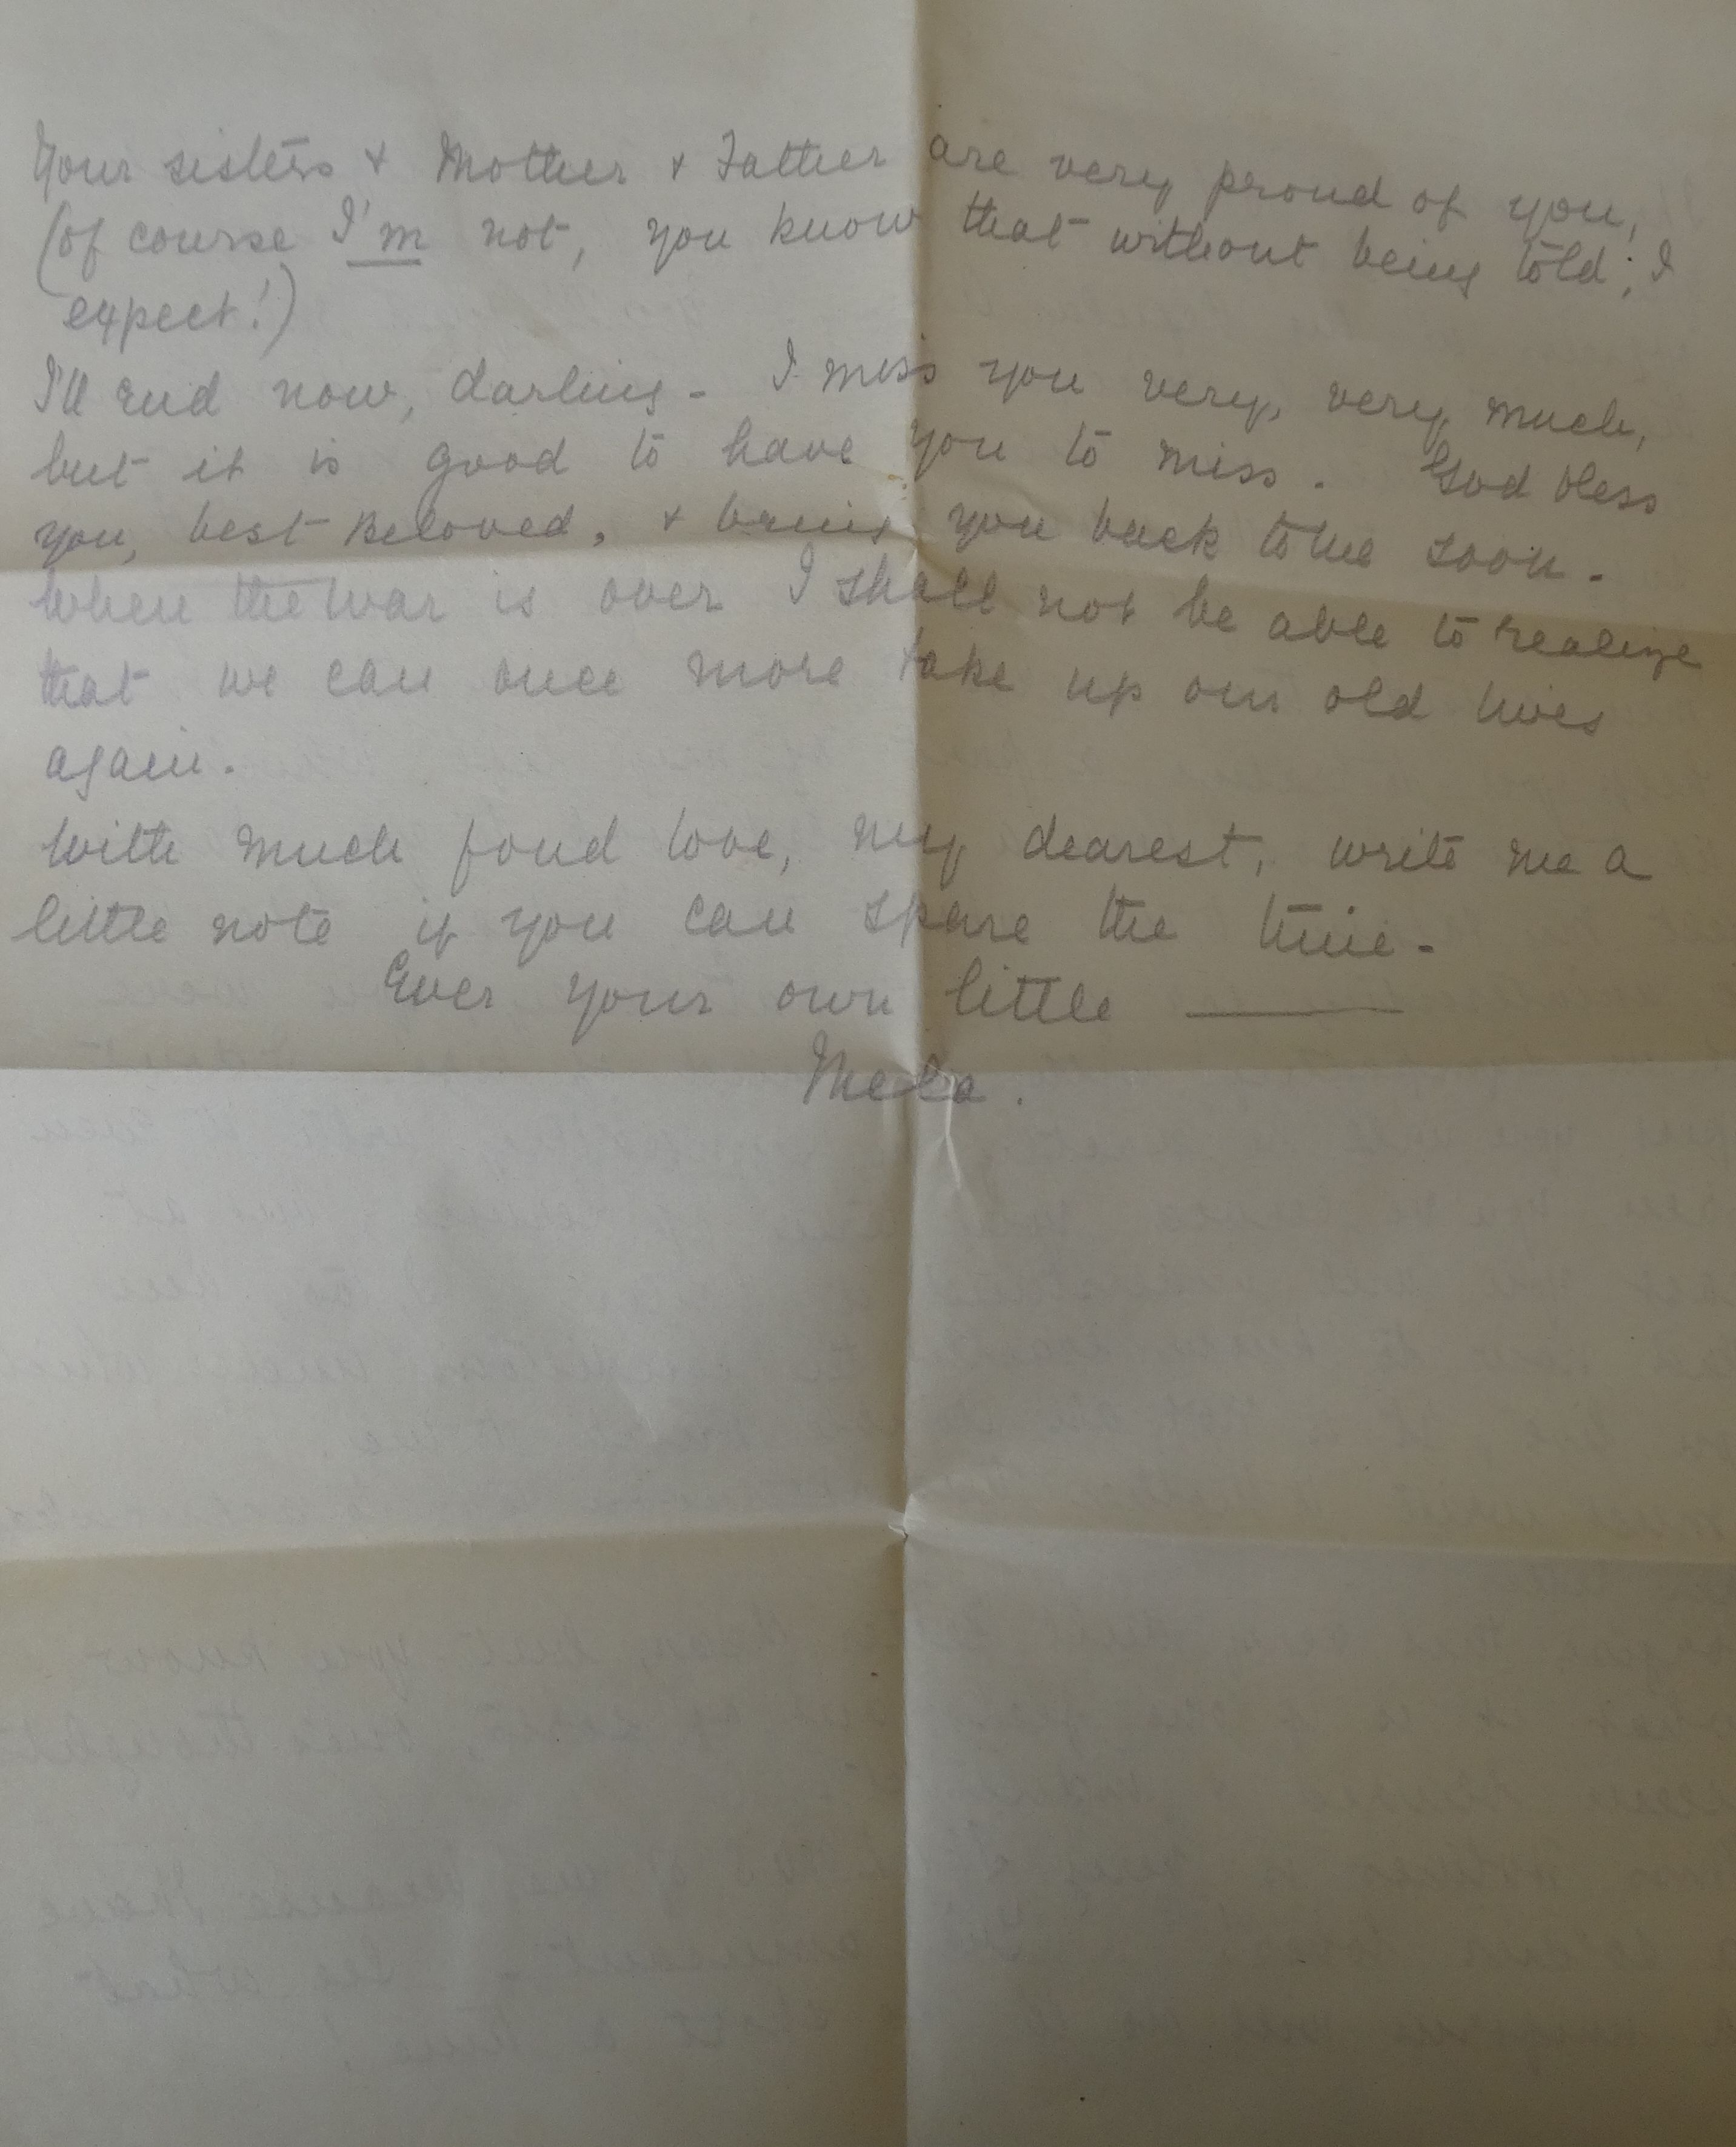 Your sisters & Mother & Father are very proud of you,
(of course I'm not, you know that without being told; I
expect!)
I'll end now, darling - I miss you very, very much,
but it is good to have you to miss. God bless
you, best Beloved, & bring you back to me soon.
When the war is over I shall not be able to realize
that we can once more take up our old lives
again.
With much fond love, my dearest, write me a
little note if you can spare the time -
Ever your own little ———